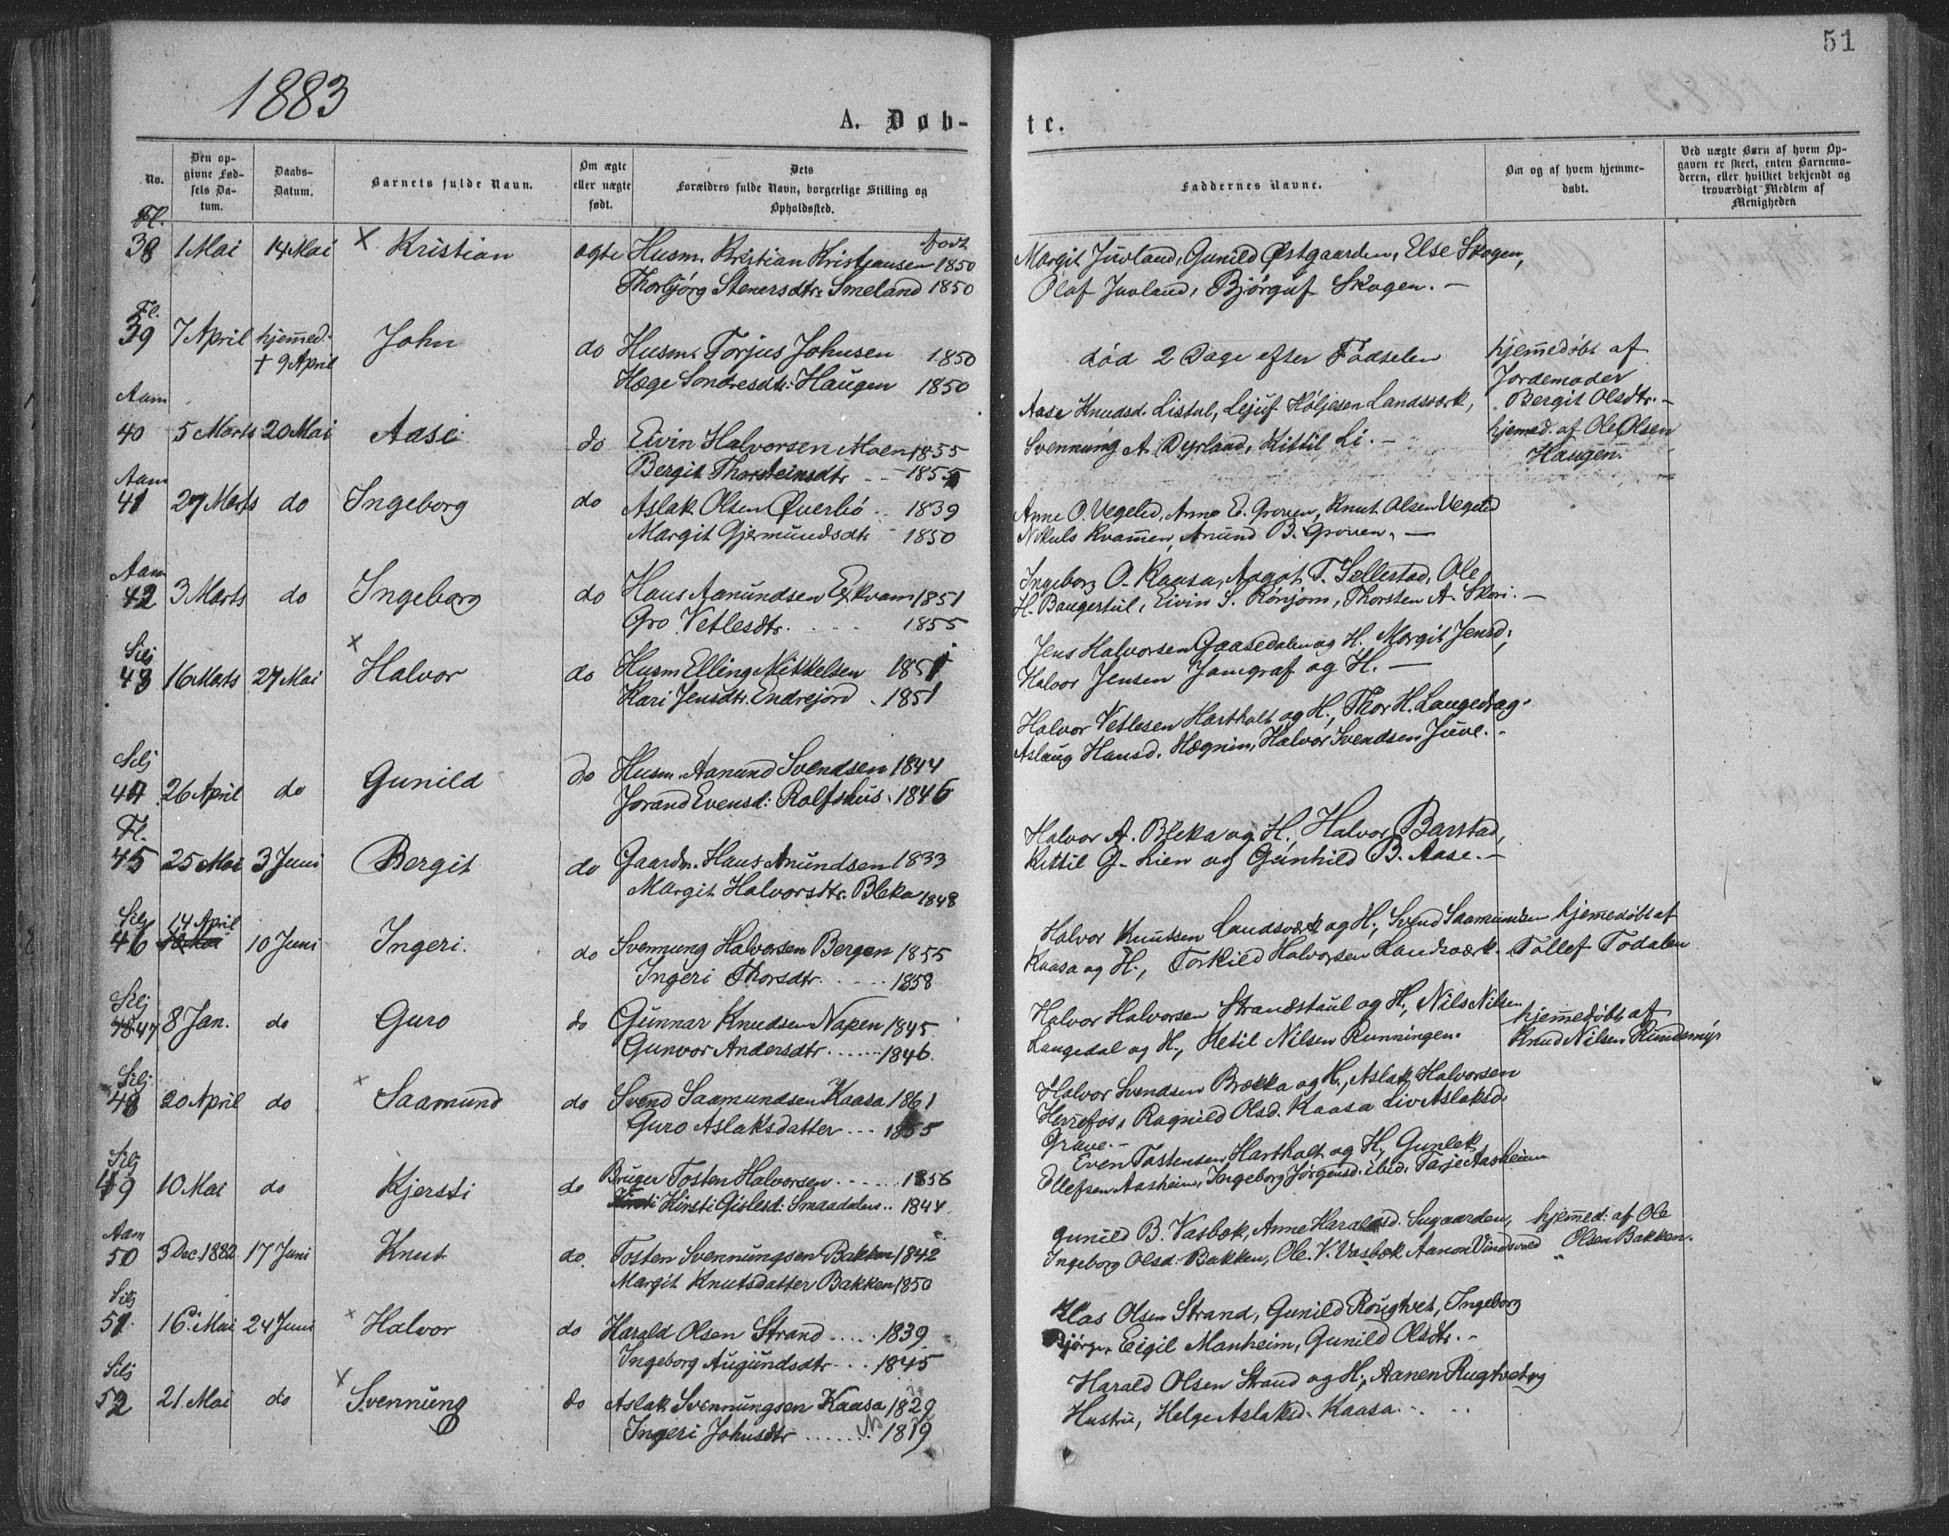 51
1883
A. Døb-
te.
No.
Den op-
givne Fød-
sels Da-
tum.
Daabs-
Datum.
Barnets fulde Navn.
Om ægte
eller uægte
født.
Dets
Forældres fulde Navn, borgerlige Stilling og
Opholdssted.
Faddernes Navne.
Om og af hvem hjemme-
døbt.
Ved uægte Børn af hvem Op-
gaven er skeet, enten Barnemo-
deren, eller hvilket bekjendt og
troværdigt Medlem af
Menigheden
Fl.
38 1 Mai 14 Mai x Kristian ægte Husm. Kristian Kristjansen født 1850
Thorbjørg Stenersdtr. Smeland 1850
Margit Juvland, Gunild Østgaarden, Else Skogen,
Olaf Juvland, Bjørguf Skogen. —
Fl.
39 7 April hjemmed. John do Husm. Torjus Johnsen 1850
+ 9 April
Hæge Sondresdtr: Haugen 1850
død 2 Dage efter Fødselen
hjemmedøbt af
Jordemoder
Bergit Olsdtr. —
Aam
40 5 Marts 20 Mai Aase do Eivin Halvorsen Moen 1855
Bergit Thorsteinsdtr — 1855
Aase Knudsd. Listul, Lejuf Høljesen Landsverk,
Svennung A. Dyrland, Kittil Li. —
hjemed. af Ole Olsen
Haugen.
Aam
41 27 Marts do Ingeborg do Aslak Olsen Øverbø 1839
Margit Gjermundsdtr 1850
Anne O. Vegelid, Anne E. Groven, Knut Olsen Vegelid
Nikuls Kvammen, Anund B. Groven. —
Aam
42 3 Marts do Ingeborg do Hans Aanundsen Ejkvam 1851
Gro Vetlesdtr. 1855
Ingeborg O. Kaasa, Aagot T. Sellestad, Ole
H. Baugerstul, Eivin S. Rønjom, Thorsten A. Skori. —
Silj
43 16 Marts 27 Mai x Halvor do Husm Elling Mikkelsen 1851
Kari Jensdtr. Endrejord 1851
Jens Halvorsen Gaasedalen og H. Margit Jensd,
Halvor Jensen Jamgraf og H. —
Silj
44 26 April do Gunild do Husm. Aanund Svendsen 1844
Jorand Evensd: Rolfshus 1846
Halvor Vetlesen Hartholt og H., Thor H. Langedrag.
Aslaug Hansd. Hægnin, Halvor Svendsen Juve. -
Fl.
45 25 Mai 3 Juni Bergit do Gaardm. Hans Anundsen 1833
Margit Halvorsdtr. Bleka 1848
Halvor A. Bleka og H., Halvor Barstad,
Kittil G. Lien og Gunhild B. Aase. —
Silj 14 April
46 10 Juni Ingeri. do Svennung Halvorsen Bergan 1855
Ingeri Thorsdtr. 1858
Halvor Knutsen Landsværk og H., Svend Saamundsen
Kaasa og H., Torkild Halvorsen Landsværk.
hjemmedøbt af
Tollef Todalen
Silj
47 8 Jan. do Guro do Gunnar Knudsen Napen 1845
Gunvor Andersdtr. 1846.
Halvor Halvorsen Strandstaul og H., Nils Nilsen
Langedal og H., Ketil Nilsen Runningen.
hjemmedøbt af
Knud Nilsen Rundemyr
Silj
48 20 April do x Saamund do Svend Saamundsen Kaasa 1861
Guro Aslaksdatter 1855
Halvor Svendsen Brækka og H., Aslak Halvorsen
Herrefos, Ragnild Olsd. Kaasa Liv Aslaksd.
Grave. -
Silj
49 10 Mai do Kjersti do Bruger Tosten Halvorsen 1856
Kirsti Gislesd: Smaadalen 1844.
Even Tostensen Hartholt og H., Gunlek
Ellefsen Aasheim, Ingeborg Jørgensd. ibid. Tarje Aasheim
Aam
50 3 Dec. 1882 17 Juni Knut do. Tosten Svennungsen Bakken 1842
Margit Knutsdatter Bakken 1850
Gunild B. Vasbæk, Anne Haraldsd. Sugaarden,
Ingeborg Olsd. Bakken, Ole K. Vasbæk Aanon Vindsvald
hjemmed: af Ole
Olsen Bakken.
Silj
51 16 Mai 24 Juni x Halvor do Harald Olsen Strand 1839
Ingeborg Augundsdtr 1845
Olsen Strand, Gunild Rougtvet, Ingeborg
Eigil Manheim, Gunild Olsdtr. -
Silj
52 21. Mai do x Svennung do Aslak Svennungsen Kaasa 1829
Ingeri Johnsdtr 1819
Harald Olsen Strand og H., Aanen Rugtvet og
Hustru, Helge Aslaksd. Kaasa.